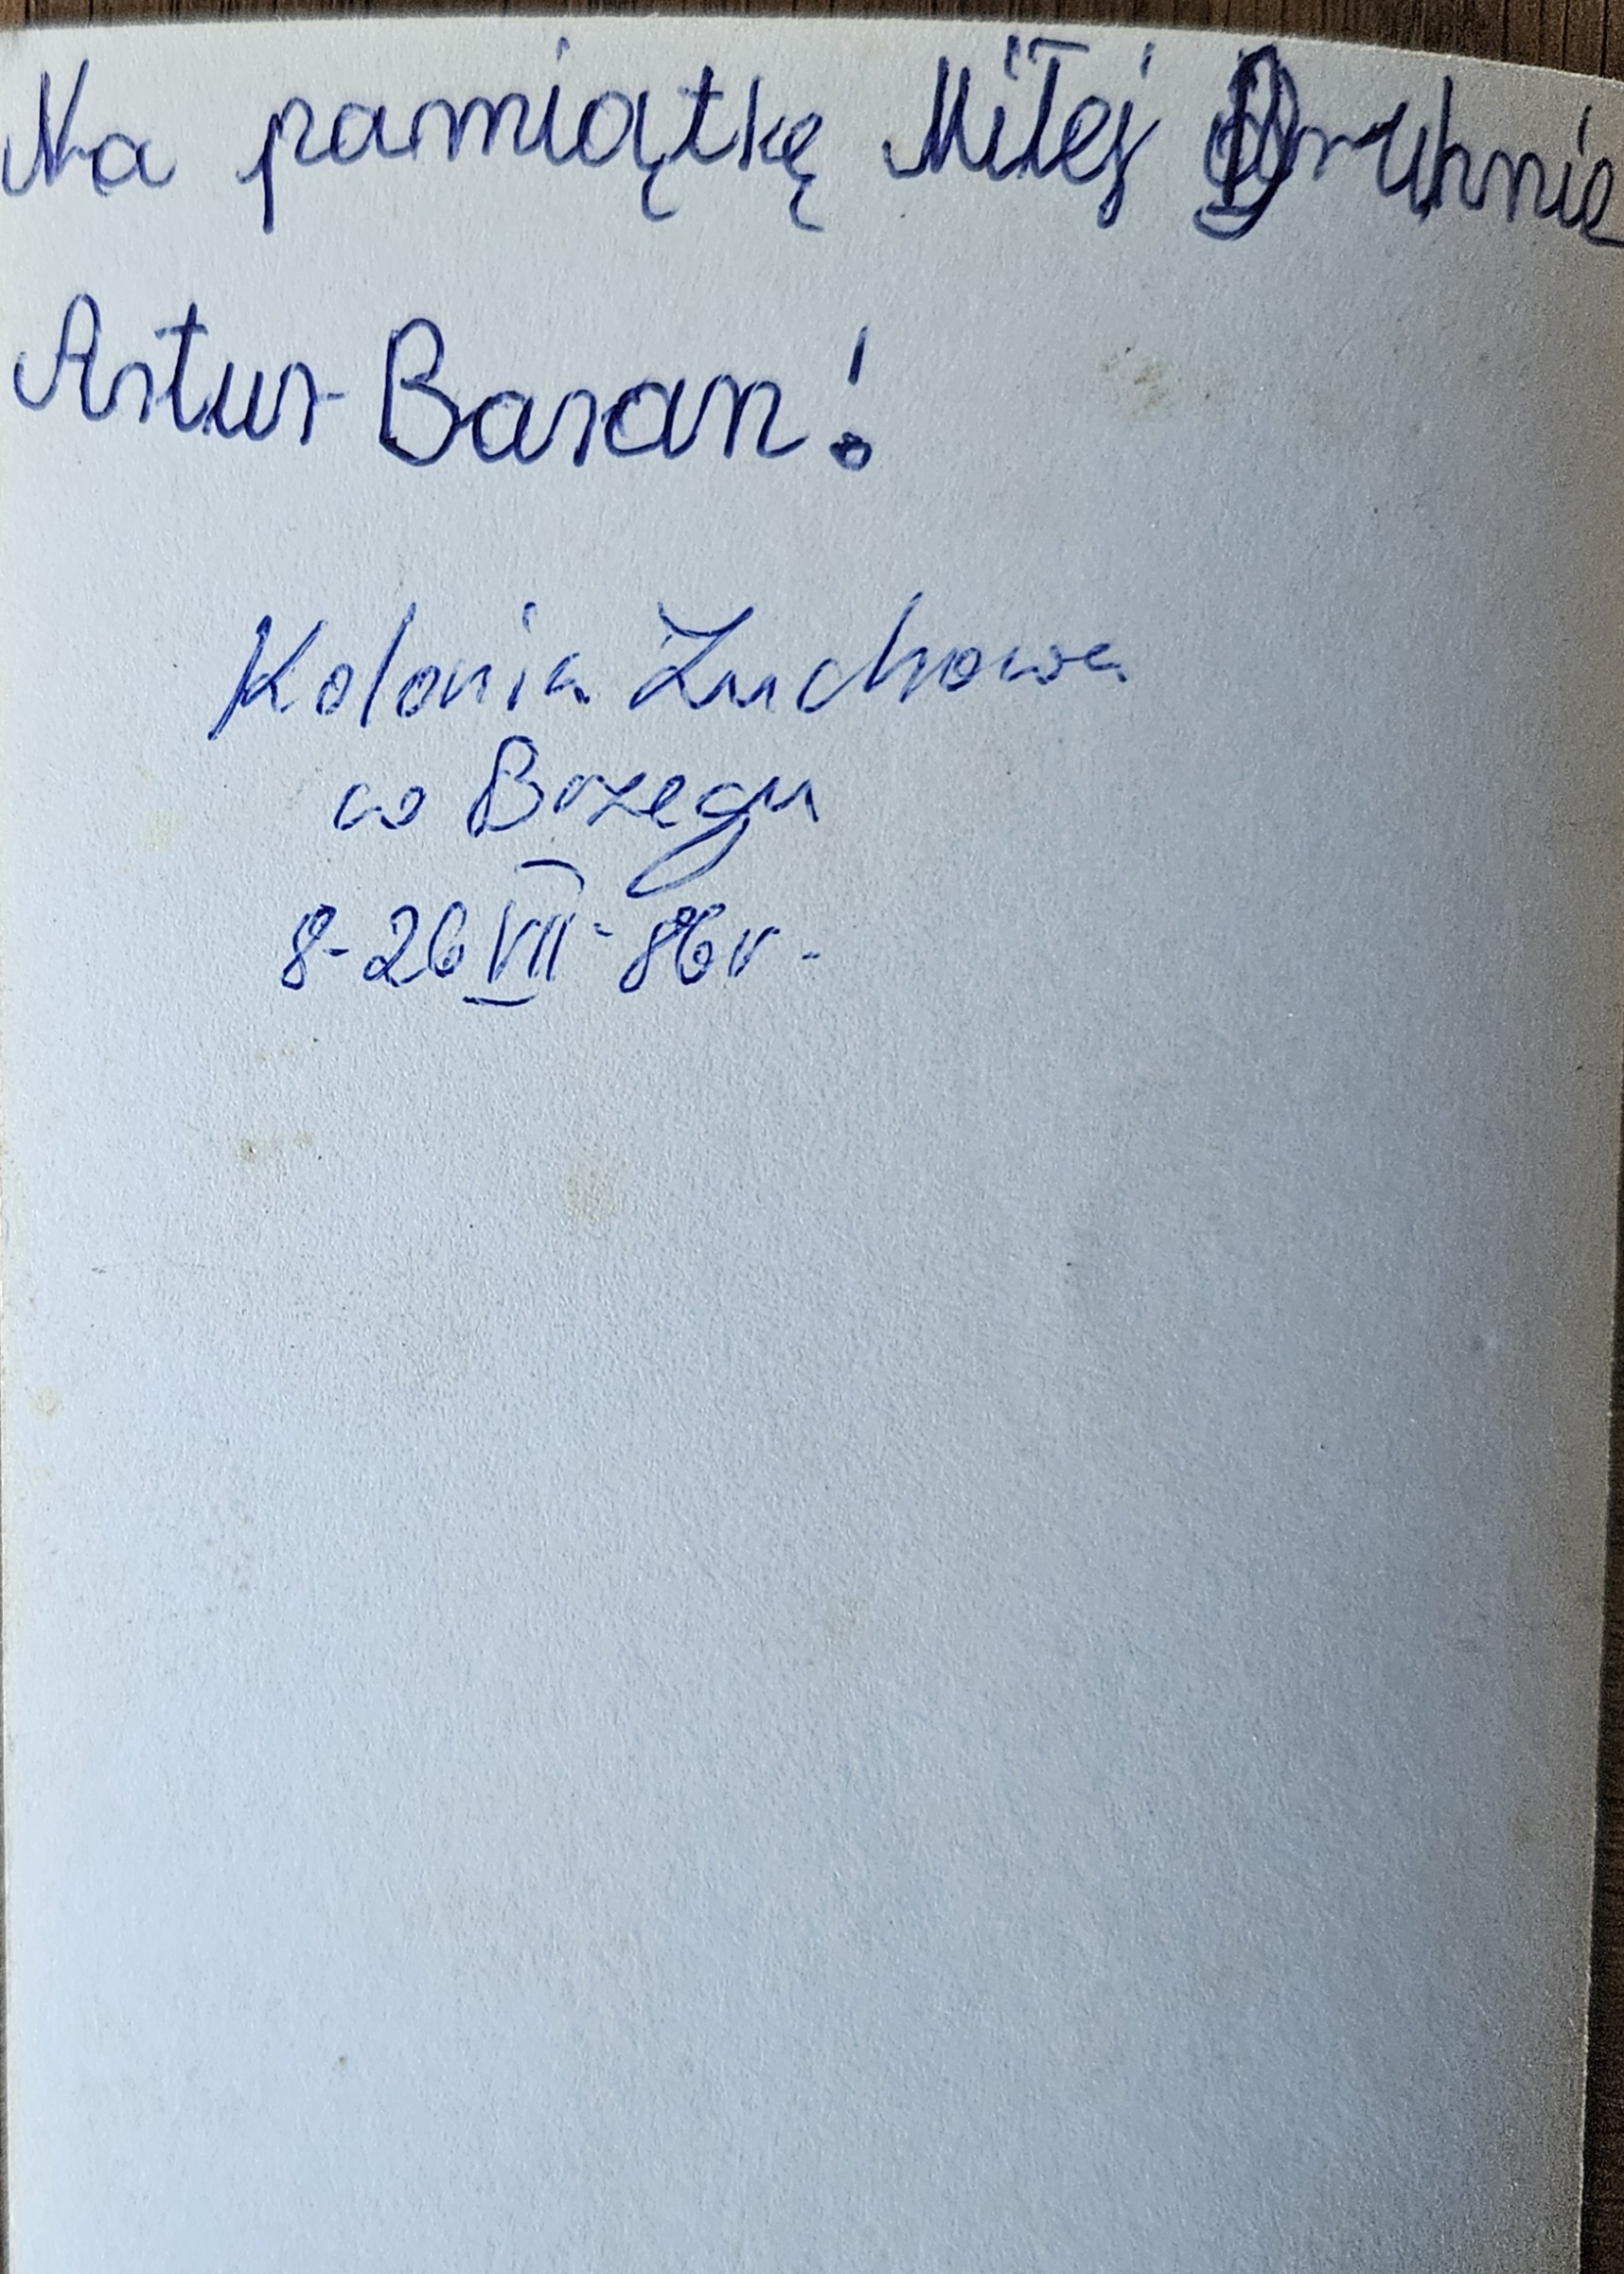 Na pamiątkę Miłej Druhnie
Artur Baran!
Kolonia Zuchowa
w Brzegu
8-26 VII-86r.